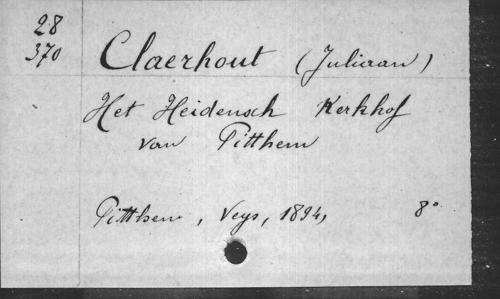 28
370
Claerhout (Juliaan)
Het Heidensch Kerkhof
van Pitthem
Pitthem, Veys, 1894, 8°